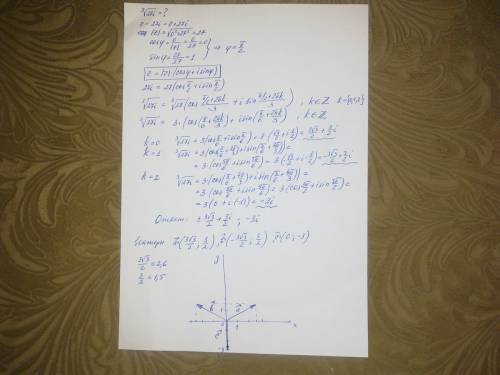 ∛27i = ?
z = 27i = 0 + 27i
|z| = √(0² + 27²) = 27
cosφ = 0/|z| = 0/27 = 0
sinφ = 27/27 = 1 } ⇒ φ = π/2
z = |z|·(cosφ + i sinφ)
27i = 27(cos π/2 + i sin π/2)
∛27i = ∛27(cos (π/2+2πk)/3 + i sin (π/2+2πk)/3), k∈Z k={0,1,2}
∛27i = 3·(cos(π/6 + 2πk/3) + i sin(π/6 + 2πk/3)), k∈Z
k=0 ∛27i = 3(cos π/6 + i sin π/6) = 3(√3/2 + i·1/2) = 3√3/2 + 3/2 i
k=1 ∛27i = 3(cos(π/6 + 2π/3) + i sin(π/6 + 2π/3)) =
= 3(cos 5π/6 + i sin 5π/6) = 3(-√3/2 + i·1/2) = -3√3/2 + 3/2 i
k=2 ∛27i = 3·(cos(π/6 + 4π/3) + i sin(π/6 + 4π/3)) =
= 3(cos 9π/6 + i sin 9π/6) = 3(cos 3π/2 + i sin 3π/2) =
= 3(0 + i·(-1)) = -3i
Ответ: ± 3√3/2 + 3/2 i ; -3i
Вектори a(3√3/2; 3/2), b(-3√3/2; 3/2), c(0; -3)
3√3/2 ≈ 2,6
3/2 = 1,5
y
b
a
1
0
1
x
c
-3